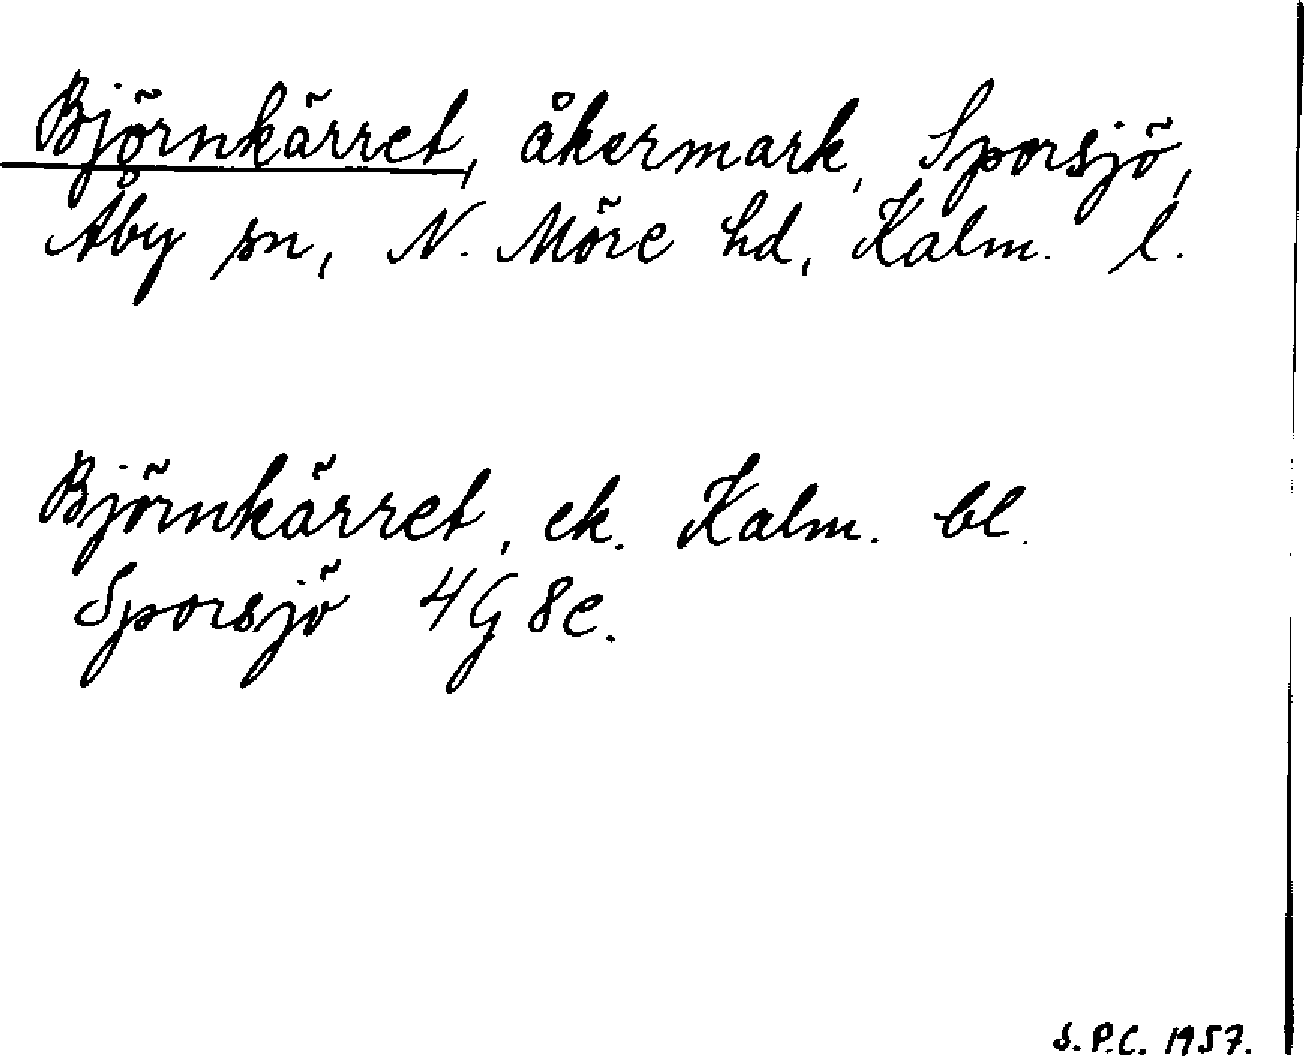 Björnkärret, åkermark, Sporsjö,
Åby sn, N. Möre hd, Kalm. l.
Björnkärret, ek. Kalm. bl.
Sporsjö 4G 8e.
S.P.C. 1957.